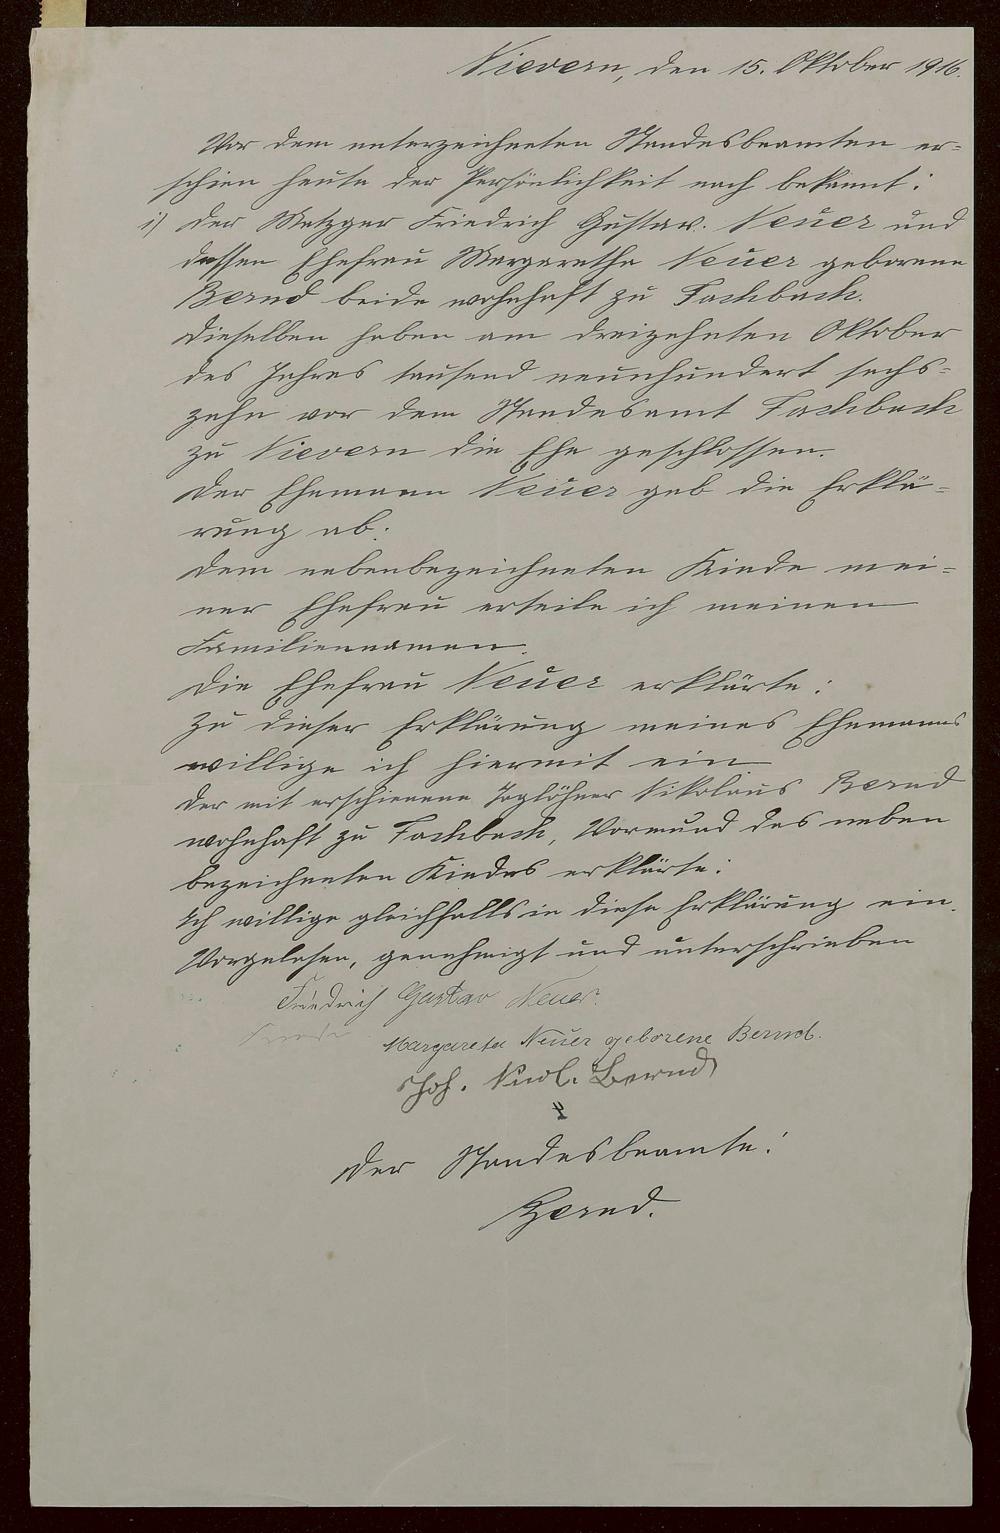 Nievern, den 15. Oktober 1916.
Vor dem unterzeichneten Standesbeamten er=
schien heute der Persönlichkeit nach bekannt:
1) der Metzger Friedrich Gustav. Neuer und
dessen Ehefrau Margarethe Neuer geborene
Bernd beide wohnhaft zu Fachbach.
Dieselben haben am dreizehnten Oktober
des Jahres tausend neunhundert sechs=
zehn vor dem Standesamt Fachbach
zu Nievern die Ehe geschlossen.
Der Ehemann Neuer gab die Erklä=
rung ab:
Dem nebenbezeichneten Kinde mei=
ner Ehefrau erteile ich meinen
Familiennamen.
Die Ehefrau Neuer erklärte:
Zu dieser Erklärung meines Ehemanns
willige ich hiermit ein
Der mit erschienene Taglöhner Nikolaus Bernd
wohnhaft zu Fachbach, Vormund des neben
bezeichneten Kindes erklärte:
Ich willige gleichfalls in diese Erklärung ein.
Vorgelesen, genehmigt und unterschrieben
Friedrich Gustav Neuer.
Margareta Neuer geborene Bernd.
Joh. Bernd
Der Standesbeamte: